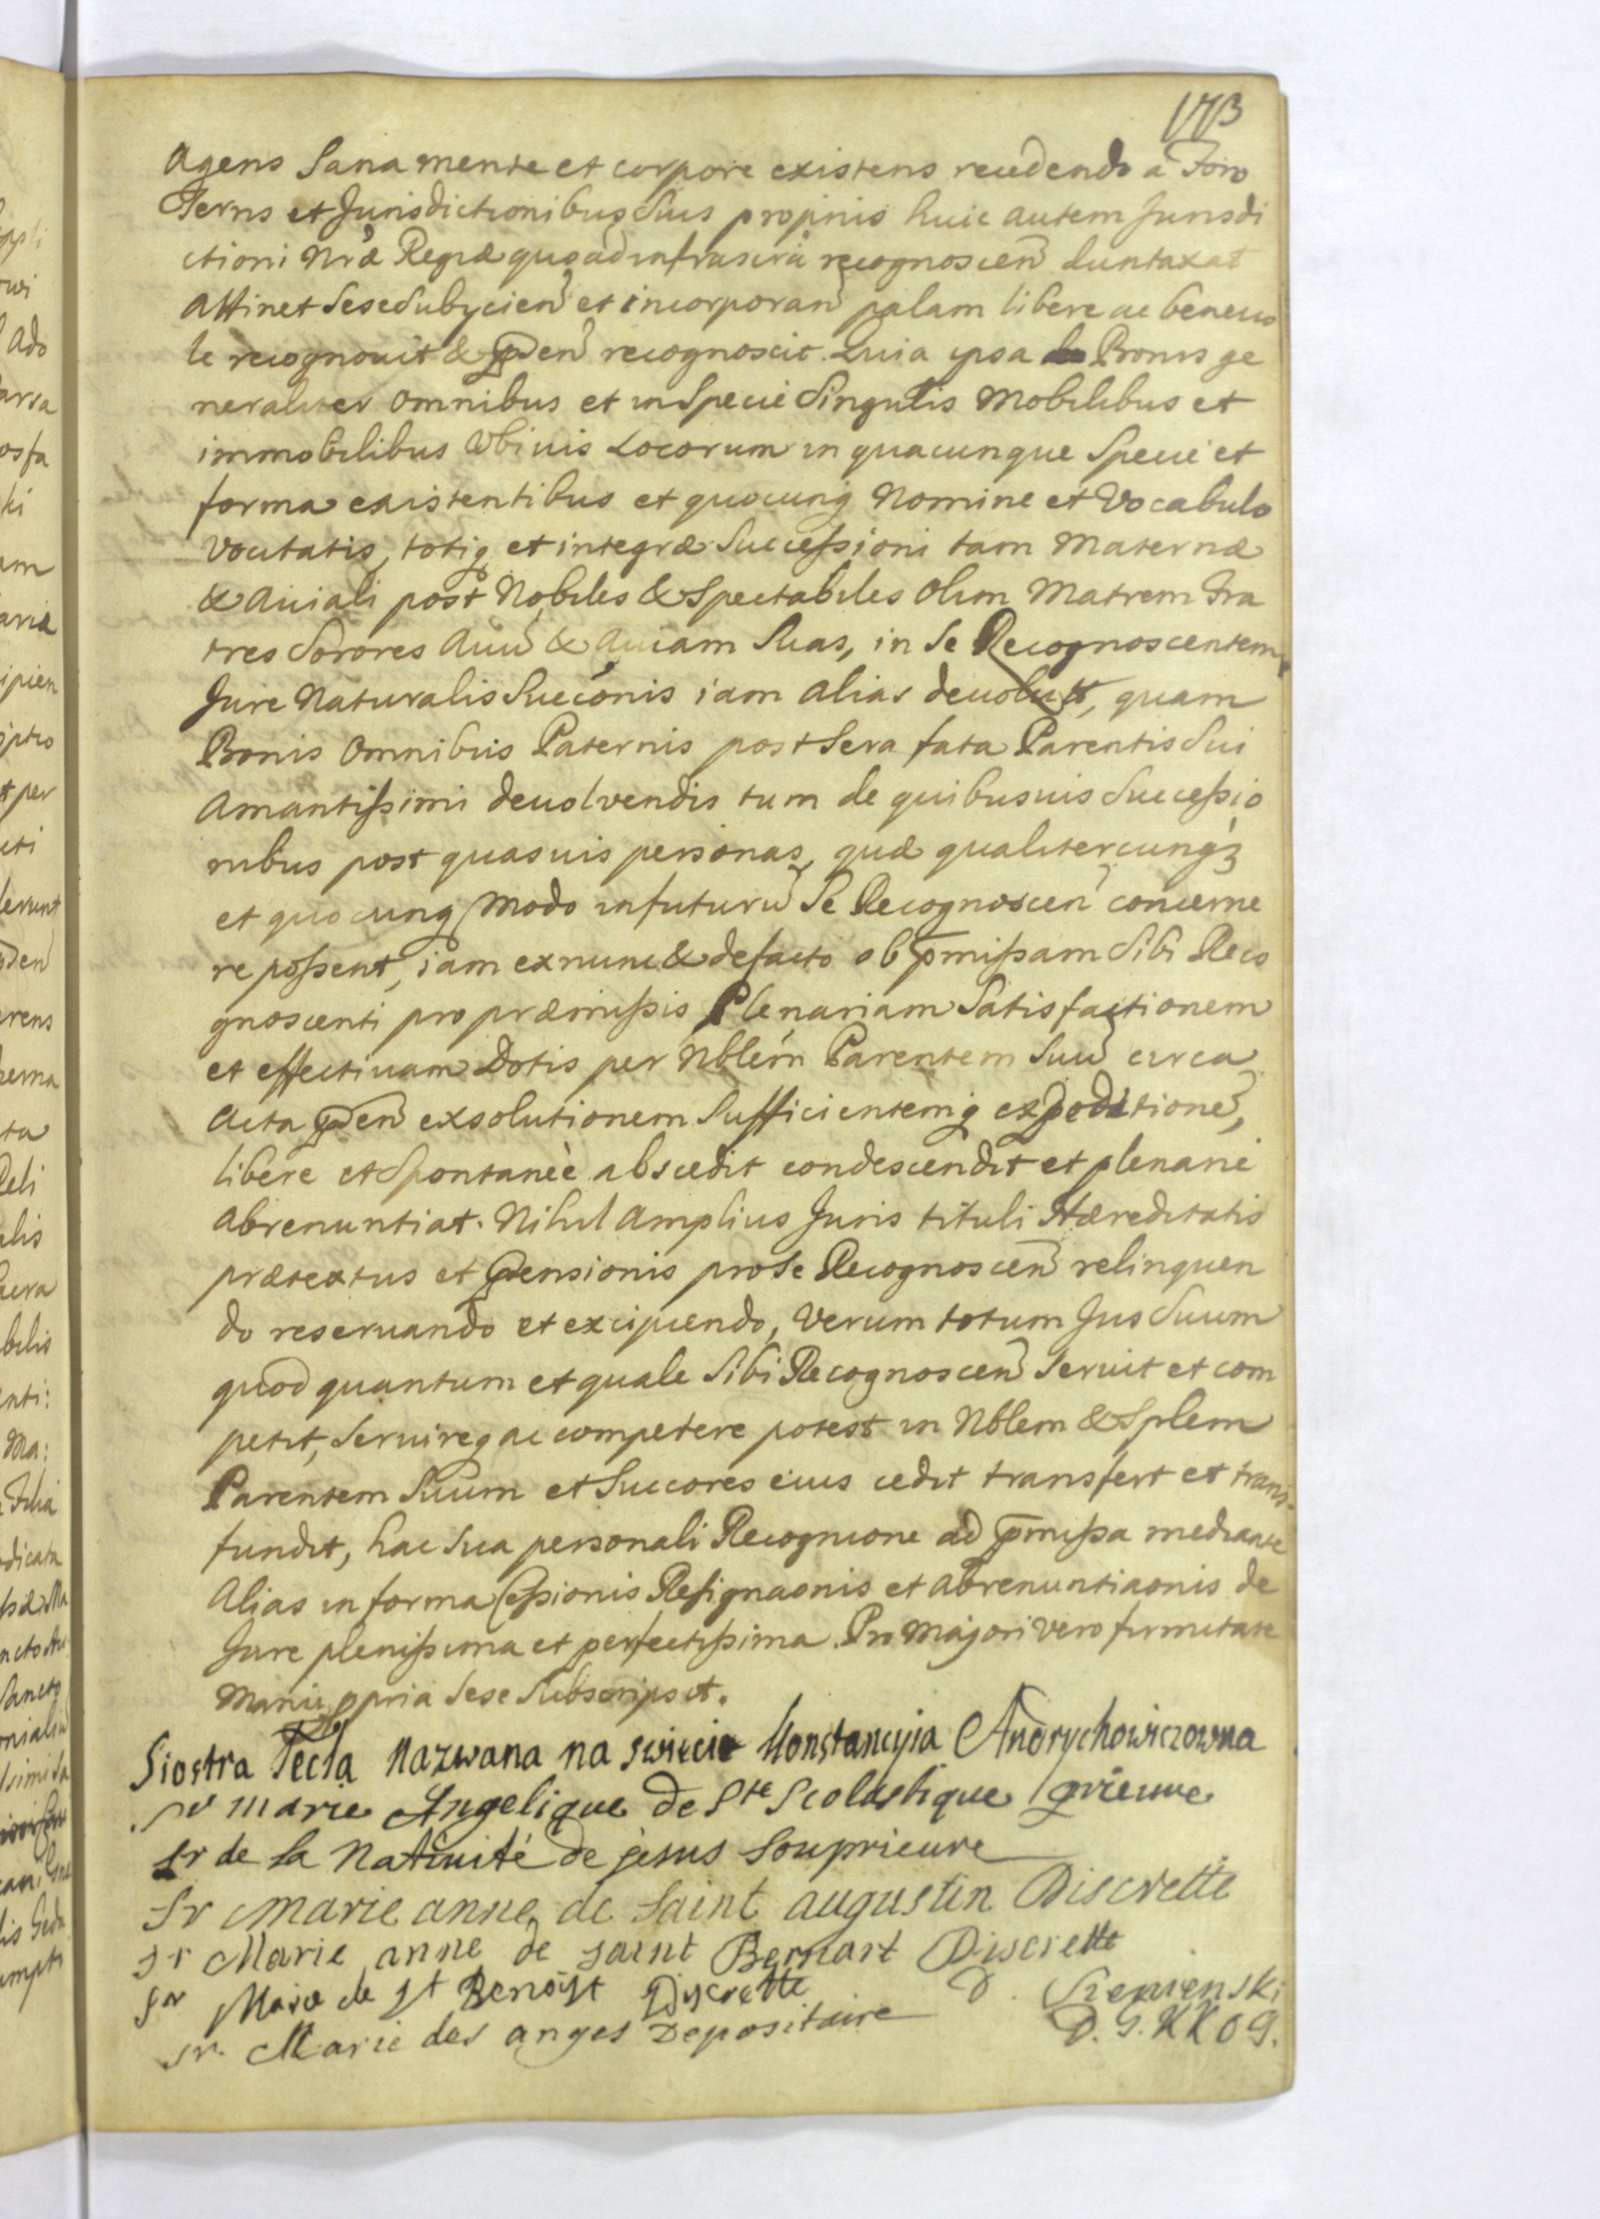 173
Agens Sana mente et corpore existens recedendo a Foro
Terris et Jurisdictionibus Suis proprijs huic autem Jurisdi
ctioni Nræ Regiæ quoad infrascrā recognoscen̄ duntaxat
Attinet Sese Subycien̄ et incorporan̄ palam libere ac beneuo
le recognouit & p̄den̄ recognoscit. Quia ipsa de Bonis ge
neraliter omnibus et in Specie Singulis Mobilibus et
immobilibus Vbiuis Locorum in quacunque Specie et
forma existentibus et quocunq Nomine et Vocabulo
vocitatis, totiq et integræ Succeßioni tam Maternæ
& Auiali post Nobiles & Spectabiles Olim Matrem Fra
tres Sorores Auū & Auiam Suas, in Se Recognoscentem
Jure Naturalis Succōnis iam alias deuolut, quam
Bonis Omnibus Paternis post Sera fata Parentis Sui
Amantißimi deuolvendis tum de quibusuis Succeßio
nibus post quasuis personas, quæ qualitercunqꝫ
et quocunq Modo in futurū Se Recognoscen̄ concerne
re poßent, iam ex nunc & de facto ob p̄mißam Sibi Reco
gnoscenti pro præmißis Plenariam Satisfactionem
et effectiuam Dotis per Nblem̄ Parentem Suū circa
Acta p̄den̄ exsolutionem Sufficientemq expeditionē,
libere et Spontaneè abscedit condescendit et plenarie
abrenuntiat. Nihil Amplius Juris tituli Hæreditatis
prætextus et p̄tensionis pro Se Recognoscen̄ relinquen
do reseruando et excipiendo, Verum totum Jus Suum
quod quantum et quale Sibi Recognoscen̄ Seruit et com
petit, Seruireq ac competere potest in Nblem & Splem
Parentem Suum et Succores eius cedit transfert et trans-
fundit, hac Sua personali Recognicione ad p̄mißa mediante
Alias in forma Ceßionis Resignaonis et Abrenuntiaonis de
Jure plenißima et perfectißima. Pro Majori vero firmitate
Manu ppria Sese Subscripsit.
Siostra Tecla Nazwana na swiecie Konstancyia Andrychowiczowna
Sr marie Angelique de Ste Scolastique prieure
Sr de la Natiuité de jesus Souprieure
Sr Marie anne de Saint augustin Discrette
Sr Marie anne de saint Bernart Discrette
Sr Marie de St Benoist Discrette
D.
Sr. Marie des anges Depositaire